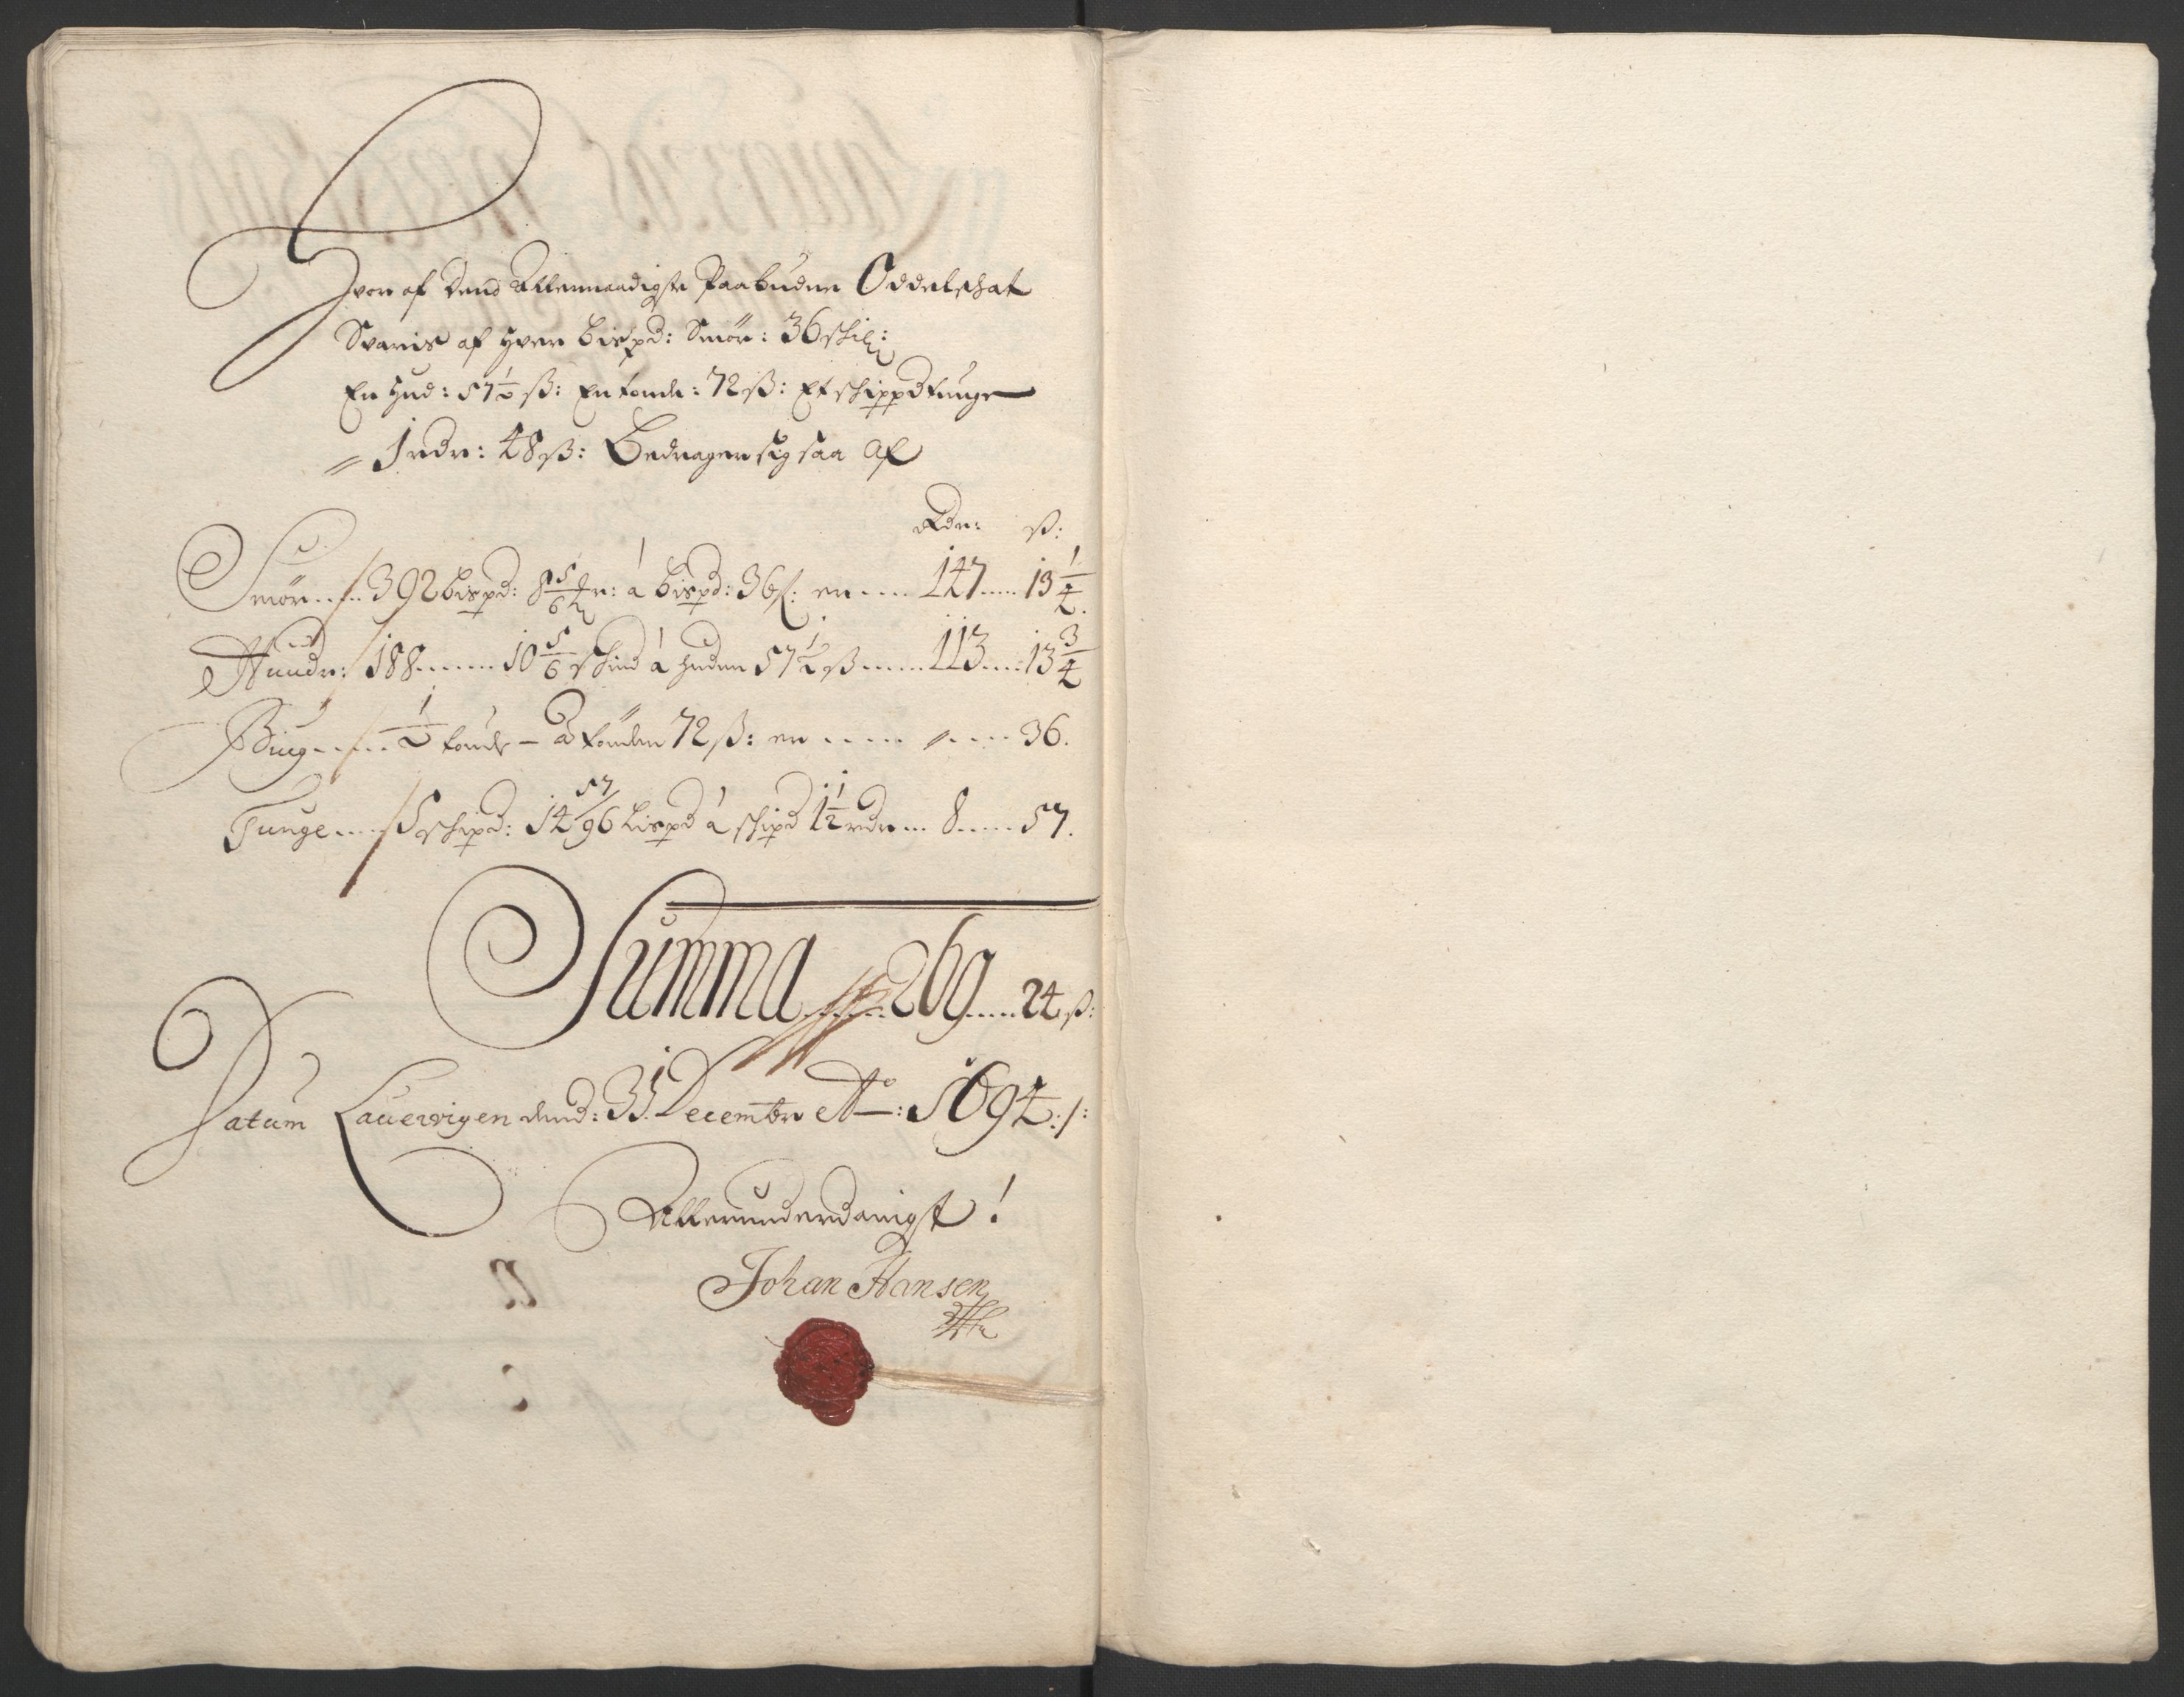 Hvor af Dend Allernaadigste Paabudne Oddelschat
Svaris af hver Bispd: Smör: 36 skil:
En hud: 57½ ß: En tonde: 72 ß: Et schippd tunge
1 rdr: 48 ß: Bedrager sig saa Af
Rdr: ß:
Smör ..... 392 bispd: 8 5/6 mr: á bispd: 36 ß: er .... 147 .... 13 1/4.
Huudr: 188 ...... 10 5/6 schind á huden 57½ ß ..... 113 .... 13 3/4
Biug ..... ½ tonde - á tönden 72 ß: er .... " .... 36.
Tunge .... 5 schipd: 14 57/96 bispd á schipd 1½ rdr ... 8 .... 57.
Summa ...... 269 ..... 24 ß:
Datum Lauervigen dend: 31 Decembr Ao: 1694:/:
Allerunderdanigst!
Johan Hansen